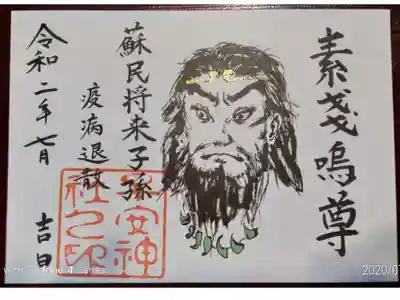 素戔嗚尊
蘇民将来子孫
疫病退散
令和二年七月 吉日
安神
社之印
2020/0